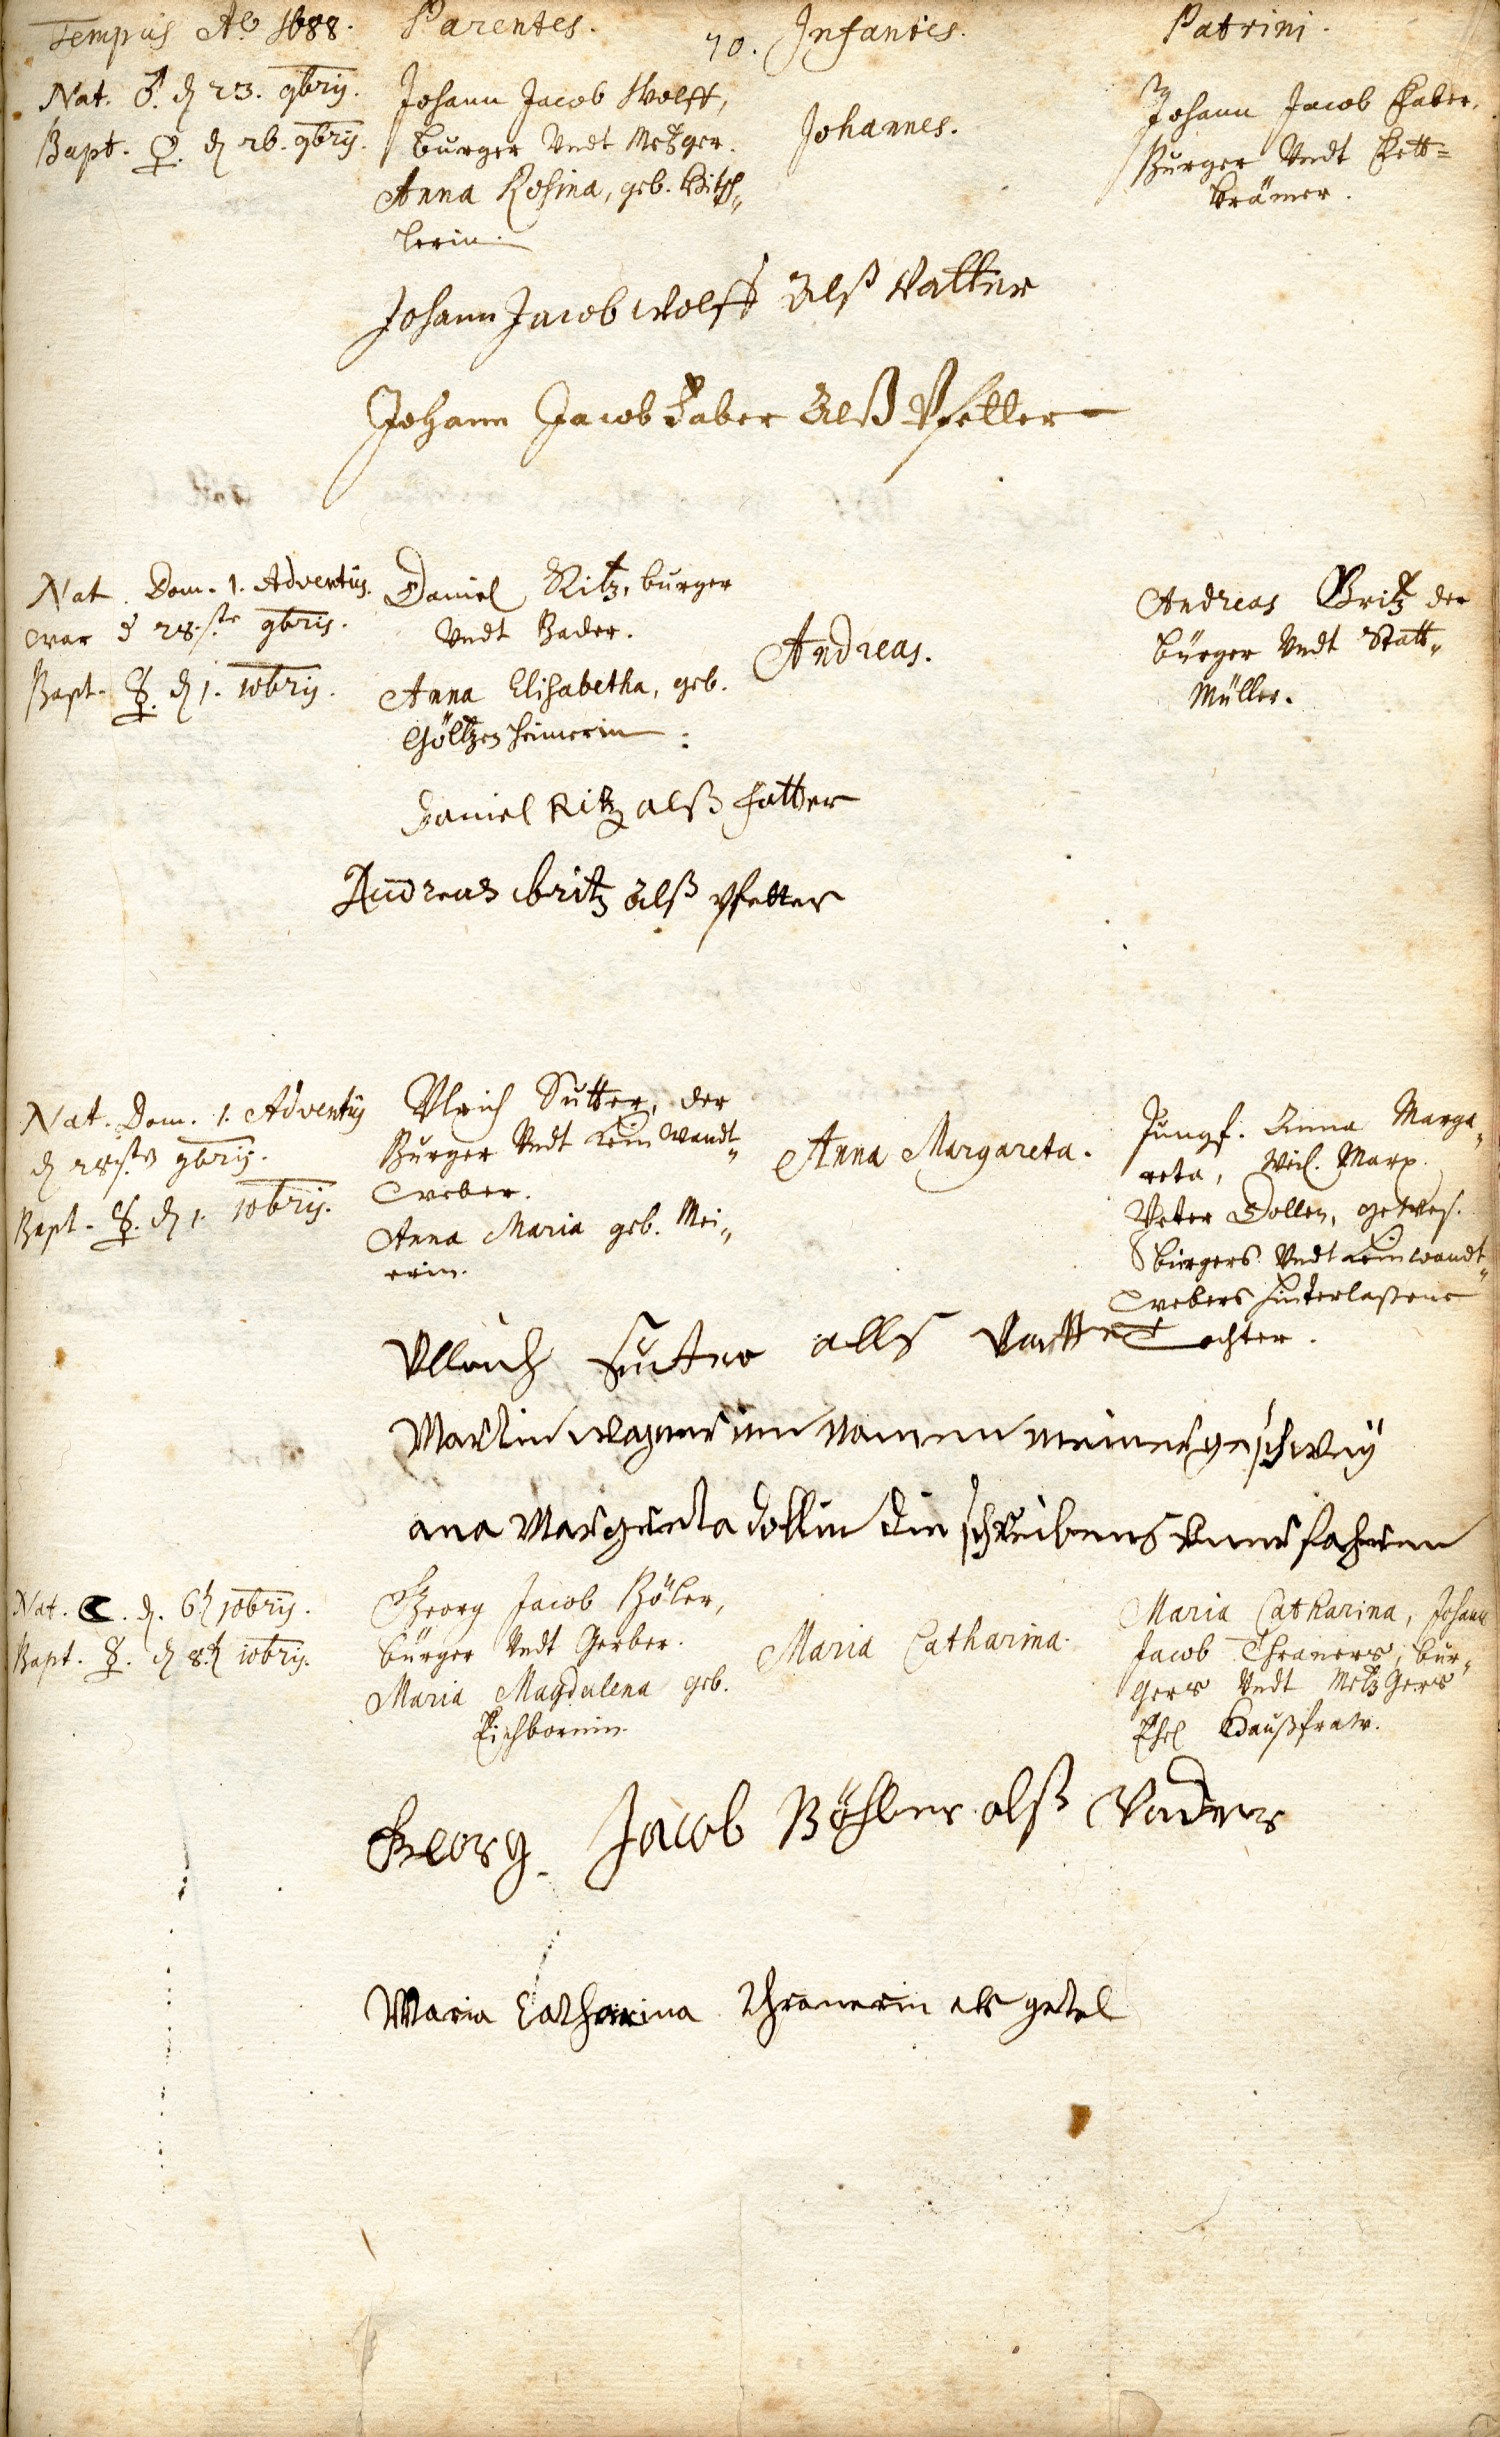 Tempus Aô 1688. Parentes. 70. Infantes. Patrini.
Nat. ♂. d 23. 9bris.
Bapt. ♀. d 26. 9bris.
Johann Jacob Wolff,
burger Undt Metzger.
Anna Rosina, geb. Bitsch„
lerin.
Johannes.
Johann Jacob Faber,
Burger Undt Fett=
krämer.
Johann Jacob Wolff Alß Vatter
Johann Jacob Faber Alß Pfetter
Nat. Dom. 1. Adventus.
war d 28.ste 9bris.
Bapt. ☿. d 1. 10bris.
Daniel Ritz, burger
Undt Bader.
Anna Elisabetha, geb.
Göltzenheimerin.
Andreas.
Andreas Britz der
bürger Undt Statt„
Müller.
Daniel Ritz alß fatter
Andreas britz alß pfetter
Nat. Dom. 1. Adventus
d 28.ste 9bris.
Bapt. ☿. d 1. 10bris.
Ulrich Sutter, der
Burger Undt Leinwandt„
weber.
Anna Maria geb. Mei„
erin.
Anna Margareta.
Jungf. Anna Marga„
reta, Weil. Marx
Peter Dollen, gewes.
bürgers Undt Leinwandt„
webers hinterlaßene
Tochter.
Ullrich Sutter alls Vatter
Martin wagner im namen meiner geschwey
ana Margreta dollin die schreibens unerfahren
Nat. ☾. d. 6t 10bris.
Bapt. ☿. d 8t 10bris.
Georg Jacob Böler,
bürger Undt Gerber.
Maria Magdalena geb.
Eichbornin.
Maria Catharina.
Maria Catharina, Johann
Jacob Thraners, bur„
gers Undt Metzgers
Ehel. Haußfraw.
Georg Jacob Böhler alß Vader
Maria Catharina Thranerin als getel